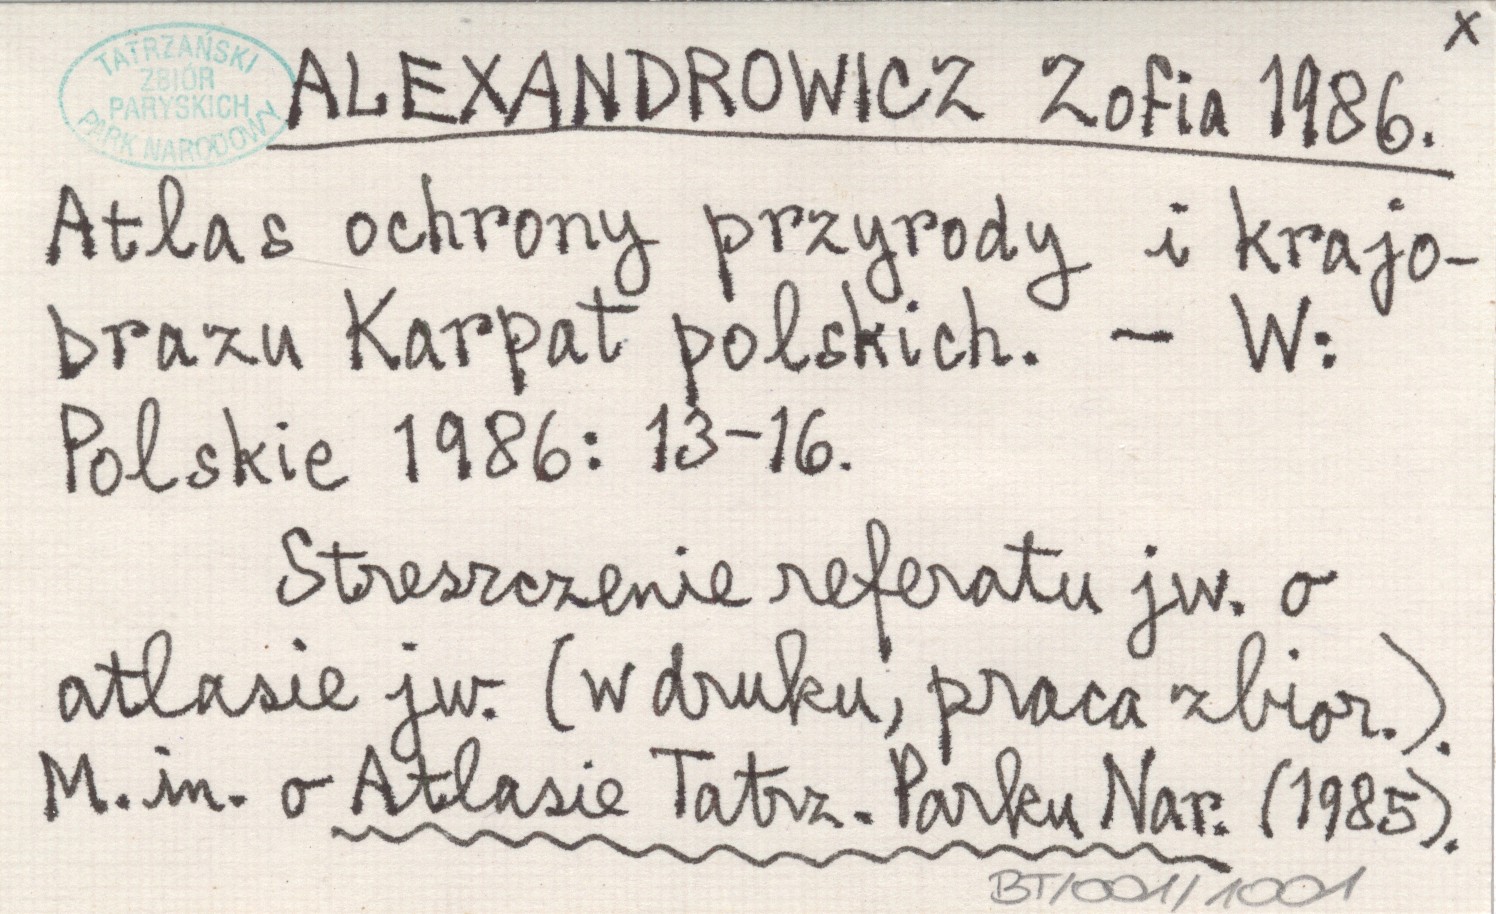 x
TATRZAŃSKI
ZBIÓR
PARYSKICH
PARK NARODOWY
ALEXANDROWICZ Zofia 1986.
Atlas ochrony przyrody i krajo-
brazu Karpat polskich. — W:
Polskie 1986: 13-16.
Streszczenie referatu jw. o
atlasie jw. (w druku, praca zbior.).
M. in. o Atlasie Tatrz. Parku Nar. (1985).
BT/001/1001